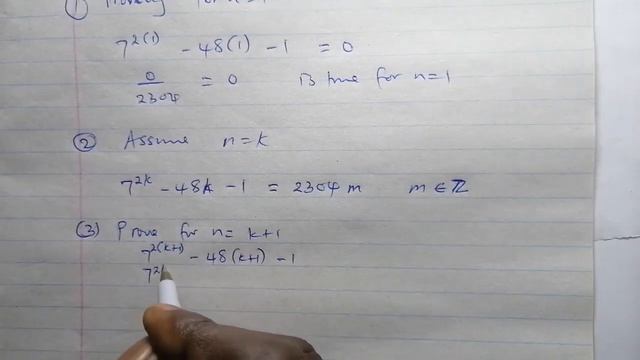 ① Proving for n=1
7^2(1) - 48(1) - 1 = 0
0/2304 = 0 is true for n=1
② Assume n=k
7^2k - 48k - 1 = 2304m m ∈ ℤ
(3) Prove for n= k+1
7^2(k+1) - 48(k+1) - 1
7^2